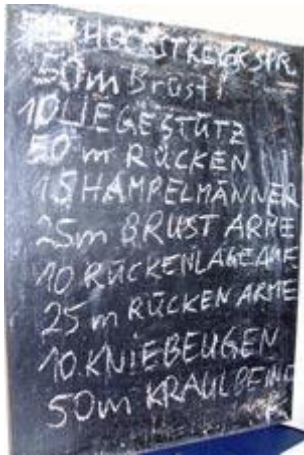 HOCKSTRECKSPR.
50m Brust!
10 LIEGESTÜTZ
50 m RÜCKEN
15 HAMPELMÄNNER
25m BRUST ARME
10 RÜCKENLAGE
25 m RÜCKEN ARME
10 KNIEBEUGEN
50m KRAULBEINE